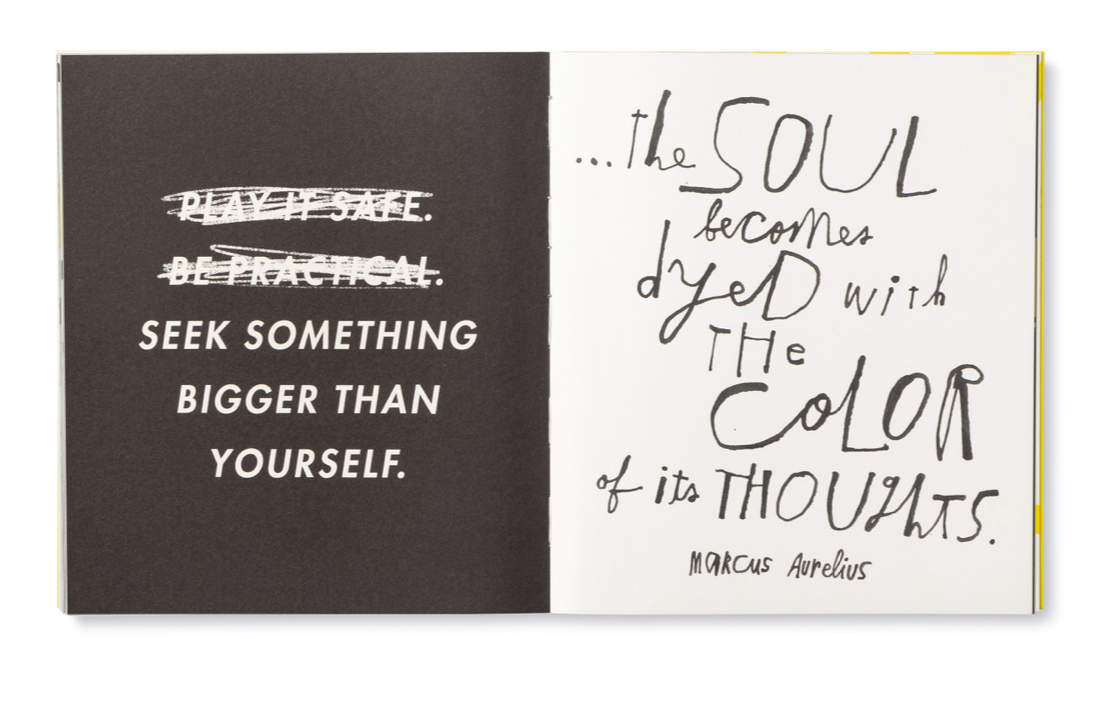 PLAY IT SAFE.
BE PRACTICAL.
SEEK SOMETHING
BIGGER THAN
YOURSELF.
...the SOUL
becomes
dyeD with
THe
CoLOR
of its THOUghTS.
MARCUS AUreliUS